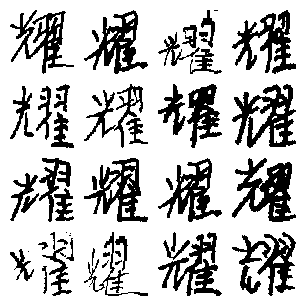 耀耀耀耀
耀耀耀耀
耀耀耀耀
耀耀耀耀